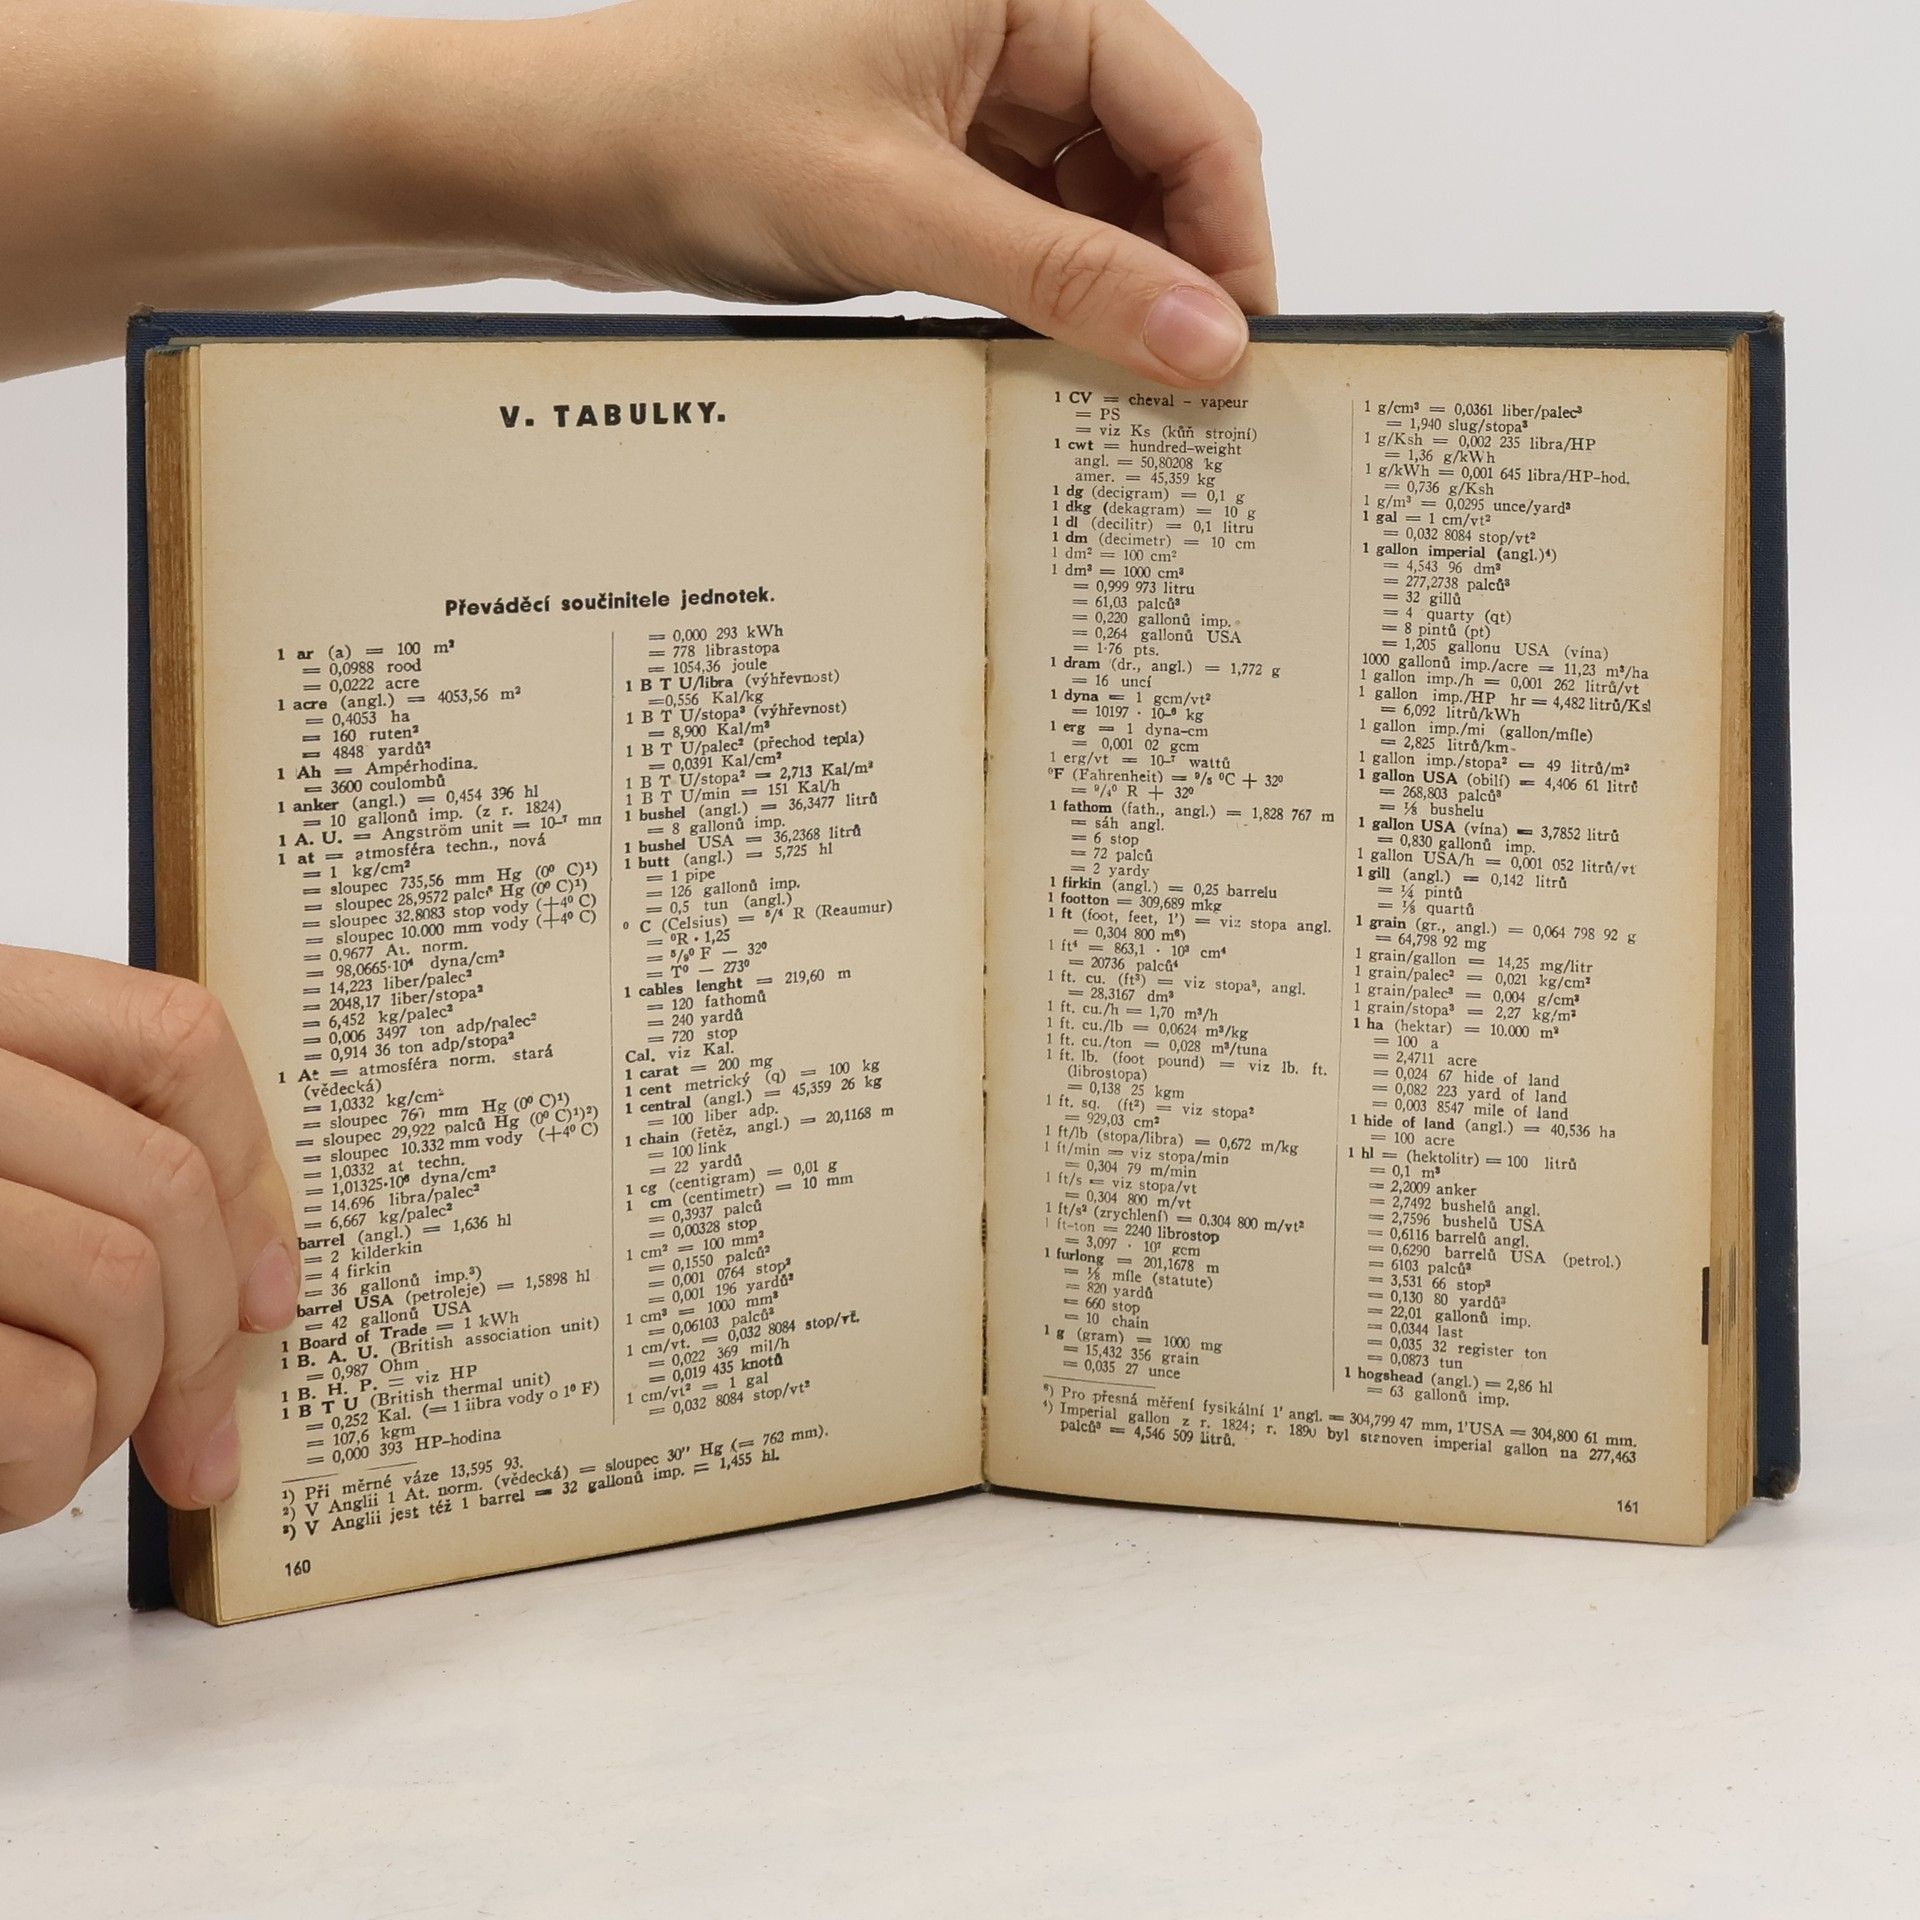 V. TABULKY.
Převáděcí součinitele jednotek.
1 ar (a) = 100 m²
= 0,0988 rood
= 0,0222 acre
1 acre (angl.) = 4053,56 m²
= 0,4053 ha
= 160 ruten²
= 4848 yardů²
1 Ah = Ampérhodina.
= 3600 coulombů
1 anker (angl.) = 0,454 396 hl
= 10 gallonů imp. (z r. 1824)
1 A. U. = Angström unit = 10-⁷ mm
1 at = atmosféra techn., nová
= 1 kg/cm²
= sloupec 735,56 mm Hg (0⁰ C)¹)
= sloupec 28,9572 palců Hg (0⁰ C)¹)
= sloupec 32.8083 stop vody (+4⁰ C)
= sloupec 10.000 mm vody (+4⁰ C)
= 0.9677 At. norm.
= 98,0665·10⁴ dyna/cm²
= 14,223 liber/palec²
= 2048,17 liber/stopa²
= 6,452 kg/palec²
= 0,006 3497 ton adp/palec²
= 0,914 36 ton adp/stopa²
1 At = atmosféra norm. stará
(vědecká)
= 1,0332 kg/cm²
= sloupec 760 mm Hg (0⁰ C)¹)
= sloupec 29,922 palců Hg (0⁰ C)¹)²)
= sloupec 10.332 mm vody (+4⁰ C)
= 1,0332 at techn.
= 1,01325·10⁶ dyna/cm²
= 14.696 libra/palec²
= 6,667 kg/palec²
barrel (angl.) = 1,636 hl
= 2 kilderkin
= 4 firkin
= 36 gallonů imp.³)
barrel USA (petroleje) = 1,5898 hl
= 42 gallonů USA
1 Board of Trade = 1 kWh
1 B. A. U. (British association unit)
= 0,987 Ohm
1 B. H. P. = viz HP
1 B T U (British thermal unit)
= 0,252 Kal. (= 1 libra vody o 1⁰ F)
= 107,6 kgm
= 0,000 393 HP-hodina
= 0,000 293 kWh
= 778 librastopa
= 1054,36 joule
1 B T U/libra (výhřevnost)
=0,556 Kal/kg
1 B T U/stopa³ (výhřevnost)
= 8,900 Kal/m³
1 B T U/palec² (přechod tepla)
= 0,0391 Kal/cm²
1 B T U/stopa² = 2,713 Kal/m²
1 B T U/min = 151 Kal/h
1 bushel (angl.) = 36,3477 litrů
= 8 gallonů imp.
1 bushel USA = 36,2368 litrů
1 butt (angl.) = 5,725 hl
= 1 pipe
= 126 gallonů imp.
= 0,5 tun (angl.)
⁰ C (Celsius) = ⁵/⁴ R (Reaumur)
= ⁰R · 1,25
= ⁵/₉⁰ F — 32⁰
= T⁰ — 273⁰
1 cables lenght = 219,60 m
= 120 fathomů
= 240 yardů
= 720 stop
Cal. viz Kal.
1 carat = 200 mg
1 cent metrický (q) = 100 kg
1 central (angl.) = 45,359 26 kg
= 100 liber adp.
1 chain (řetěz, angl.) = 20,1168 m
= 100 link
= 22 yardů
1 cg (centigram) = 0,01 g
1 cm (centimetr) = 10 mm
= 0,3937 palců
= 0,00328 stop
1 cm² = 100 mm²
= 0,1550 palců²
= 0,001 0764 stop²
= 0,001 196 yardů²
1 cm³ = 1000 mm³
= 0,06103 palců³
1 cm/vt. = 0,032 8084 stop/vt.
= 0,022 369 mil/h
= 0,019 435 knotů
1 cm/vt² = 1 gal
= 0,032 8084 stop/vt²
¹) Při měrné váze 13,595 93.
²) V Anglii 1 At. norm. (vědecká) = sloupec 30″ Hg (= 762 mm).
³) V Anglii jest též 1 barrel = 32 gallonů imp. = 1,455 hl.
160
1 CV = cheval - vapeur
= PS
= viz Ks (kůň strojní)
1 cwt = hundred-weight
angl. = 50,80208 kg
amer. = 45,359 kg
1 dg (decigram) = 0,1 g
1 dkg (dekagram) = 10 g
1 dl (decilitr) = 0,1 litru
1 dm (decimetr) = 10 cm
1 dm² = 100 cm²
1 dm³ = 1000 cm³
= 0,999 973 litru
= 61,03 palců³
= 0,220 gallonů imp.
= 0,264 gallonů USA
= 1·76 pts.
1 dram (dr., angl.) = 1,772 g
= 16 uncí
1 dyna = 1 gcm/vt²
= 10197 · 10-⁶ kg
1 erg = 1 dyna-cm
= 0,001 02 gcm
1 erg/vt = 10-⁷ wattů
⁰F (Fahrenheit) = ⁹/₅ ⁰C + 32⁰
= ⁹/₄⁰ R + 32⁰
1 fathom (fath., angl.) = 1,828 767 m
= sáh angl.
= 6 stop
= 72 palců
= 2 yardy
1 firkin (angl.) = 0,25 barrelu
1 footton = 309,689 mkg
1 ft (foot, feet, 1′) = viz stopa angl.
= 0,304 800 m⁶)
1 ft⁴ = 863,1 · 10³ cm⁴
= 20736 palců⁴
1 ft. cu. (ft³) = viz stopa³, angl.
= 28,3167 dm³
1 ft. cu./h = 1,70 m³/h
1 ft. cu./lb = 0,0624 m³/kg
1 ft. cu./ton = 0,028 m³/tuna
1 ft. lb. (foot pound) = viz lb. ft.
(librostopa)
= 0,138 25 kgm
1 ft. sq. (ft²) = viz stopa²
= 929,03 cm²
1 ft/lb (stopa/libra) = 0,672 m/kg
1 ft/min = viz stopa/min
= 0,304 79 m/min
1 ft/s = viz stopa/vt
= 0,304 800 m/vt
1 ft/s² (zrychlení) = 0.304 800 m/vt²
1 ft-ton = 2240 librostop
= 3,097 · 10⁷ gcm
1 furlong = 201,1678 m
= ⅛ míle (statute)
= 820 yardů
= 660 stop
= 10 chain
1 g (gram) = 1000 mg
= 15,432 356 grain
= 0,035 27 unce
1 g/cm³ = 0,0361 liber/palec³
= 1,940 slug/stopa³
1 g/Ksh = 0,002 235 libra/HP
= 1,36 g/kWh
1 g/kWh = 0,001 645 libra/HP-hod.
= 0,736 g/Ksh
1 g/m³ = 0,0295 unce/yard³
1 gal = 1 cm/vt²
= 0,032 8084 stop/vt²
1 gallon imperial (angl.)⁴)
= 4,543 96 dm³
= 277,2738 palců³
= 32 gillů
= 4 quarty (qt)
= 8 pintů (pt)
= 1,205 gallonu USA (vína)
1000 gallonů imp./acre = 11,23 m³/ha
1 gallon imp./h = 0,001 262 litrů/vt
1 gallon imp./HP hr = 4,482 litrů/Ksl
= 6,092 litrů/kWh
1 gallon imp./mi (gallon/míle)
= 2,825 litrů/km
1 gallon imp./stopa² = 49 litrů/m²
1 gallon USA (obilí) = 4,406 61 litrů
= 268,803 palců³
= ⅛ bushelu
1 gallon USA (vína) = 3,7852 litrů
= 0,830 gallonů imp.
1 gallon USA/h = 0,001 052 litrů/vt
1 gill (angl.) = 0,142 litrů
= ¼ pintů
= ⅛ quartů
1 grain (gr., angl.) = 0,064 798 92 g
= 64,798 92 mg
1 grain/gallon = 14,25 mg/litr
1 grain/palec² = 0,021 kg/cm²
1 grain/palec³ = 0,004 g/cm³
1 grain/stopa³ = 2,27 kg/m³
1 ha (hektar) = 10.000 m²
= 100 a
= 2,4711 acre
= 0,024 67 hide of land
= 0,082 223 yard of land
= 0,003 8547 mile of land
1 hide of land (angl.) = 40,536 ha
= 100 acre
1 hl = (hektolitr) = 100 litrů
= 0,1 m³
= 2,2009 anker
= 2,7492 bushelů angl.
= 2,7596 bushelů USA
= 0,6116 barrelů angl.
= 0,6290 barrelů USA (petrol.)
= 6103 palců³
= 3,531 66 stop³
= 0,130 80 yardů³
= 22,01 gallonů imp.
= 0,0344 last
= 0,035 32 register ton
= 0,0873 tun
1 hogshead (angl.) = 2,86 hl
= 63 gallonů imp.
⁶) Pro přesná měření fysikální 1′ angl. = 304,799 47 mm, 1′USA = 304,800 61 mm.
⁴) Imperial gallon z r. 1824; r. 1890 byl stanoven imperial gallon na 277,463
palců³ = 4,546 509 litrů.
161